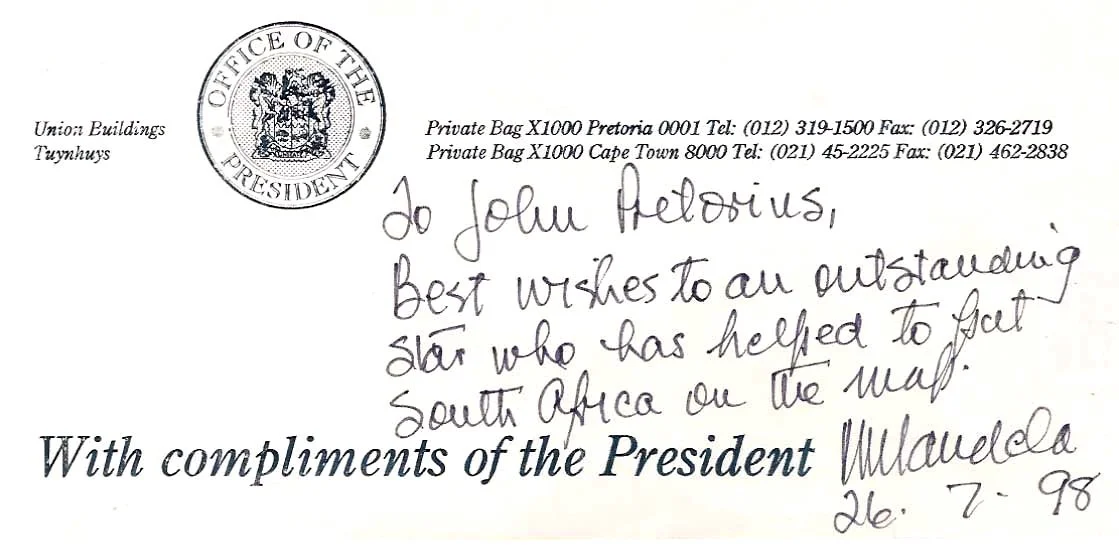 OFFICE OF THE PRESIDENT
Union Buildings
Tuynhuys
Private Bag X1000 Pretoria 0001 Tel: (012) 319-1500 Fax: (012) 326-2719
Private Bag X1000 Cape Town 8000 Tel: (021) 45-2225 Fax: (021) 462-2838
To John Pretorius,
Best wishes to an outstanding
star who has helped to put
South Africa on the map.
With compliments of the President
NMandela
26. 7. 98